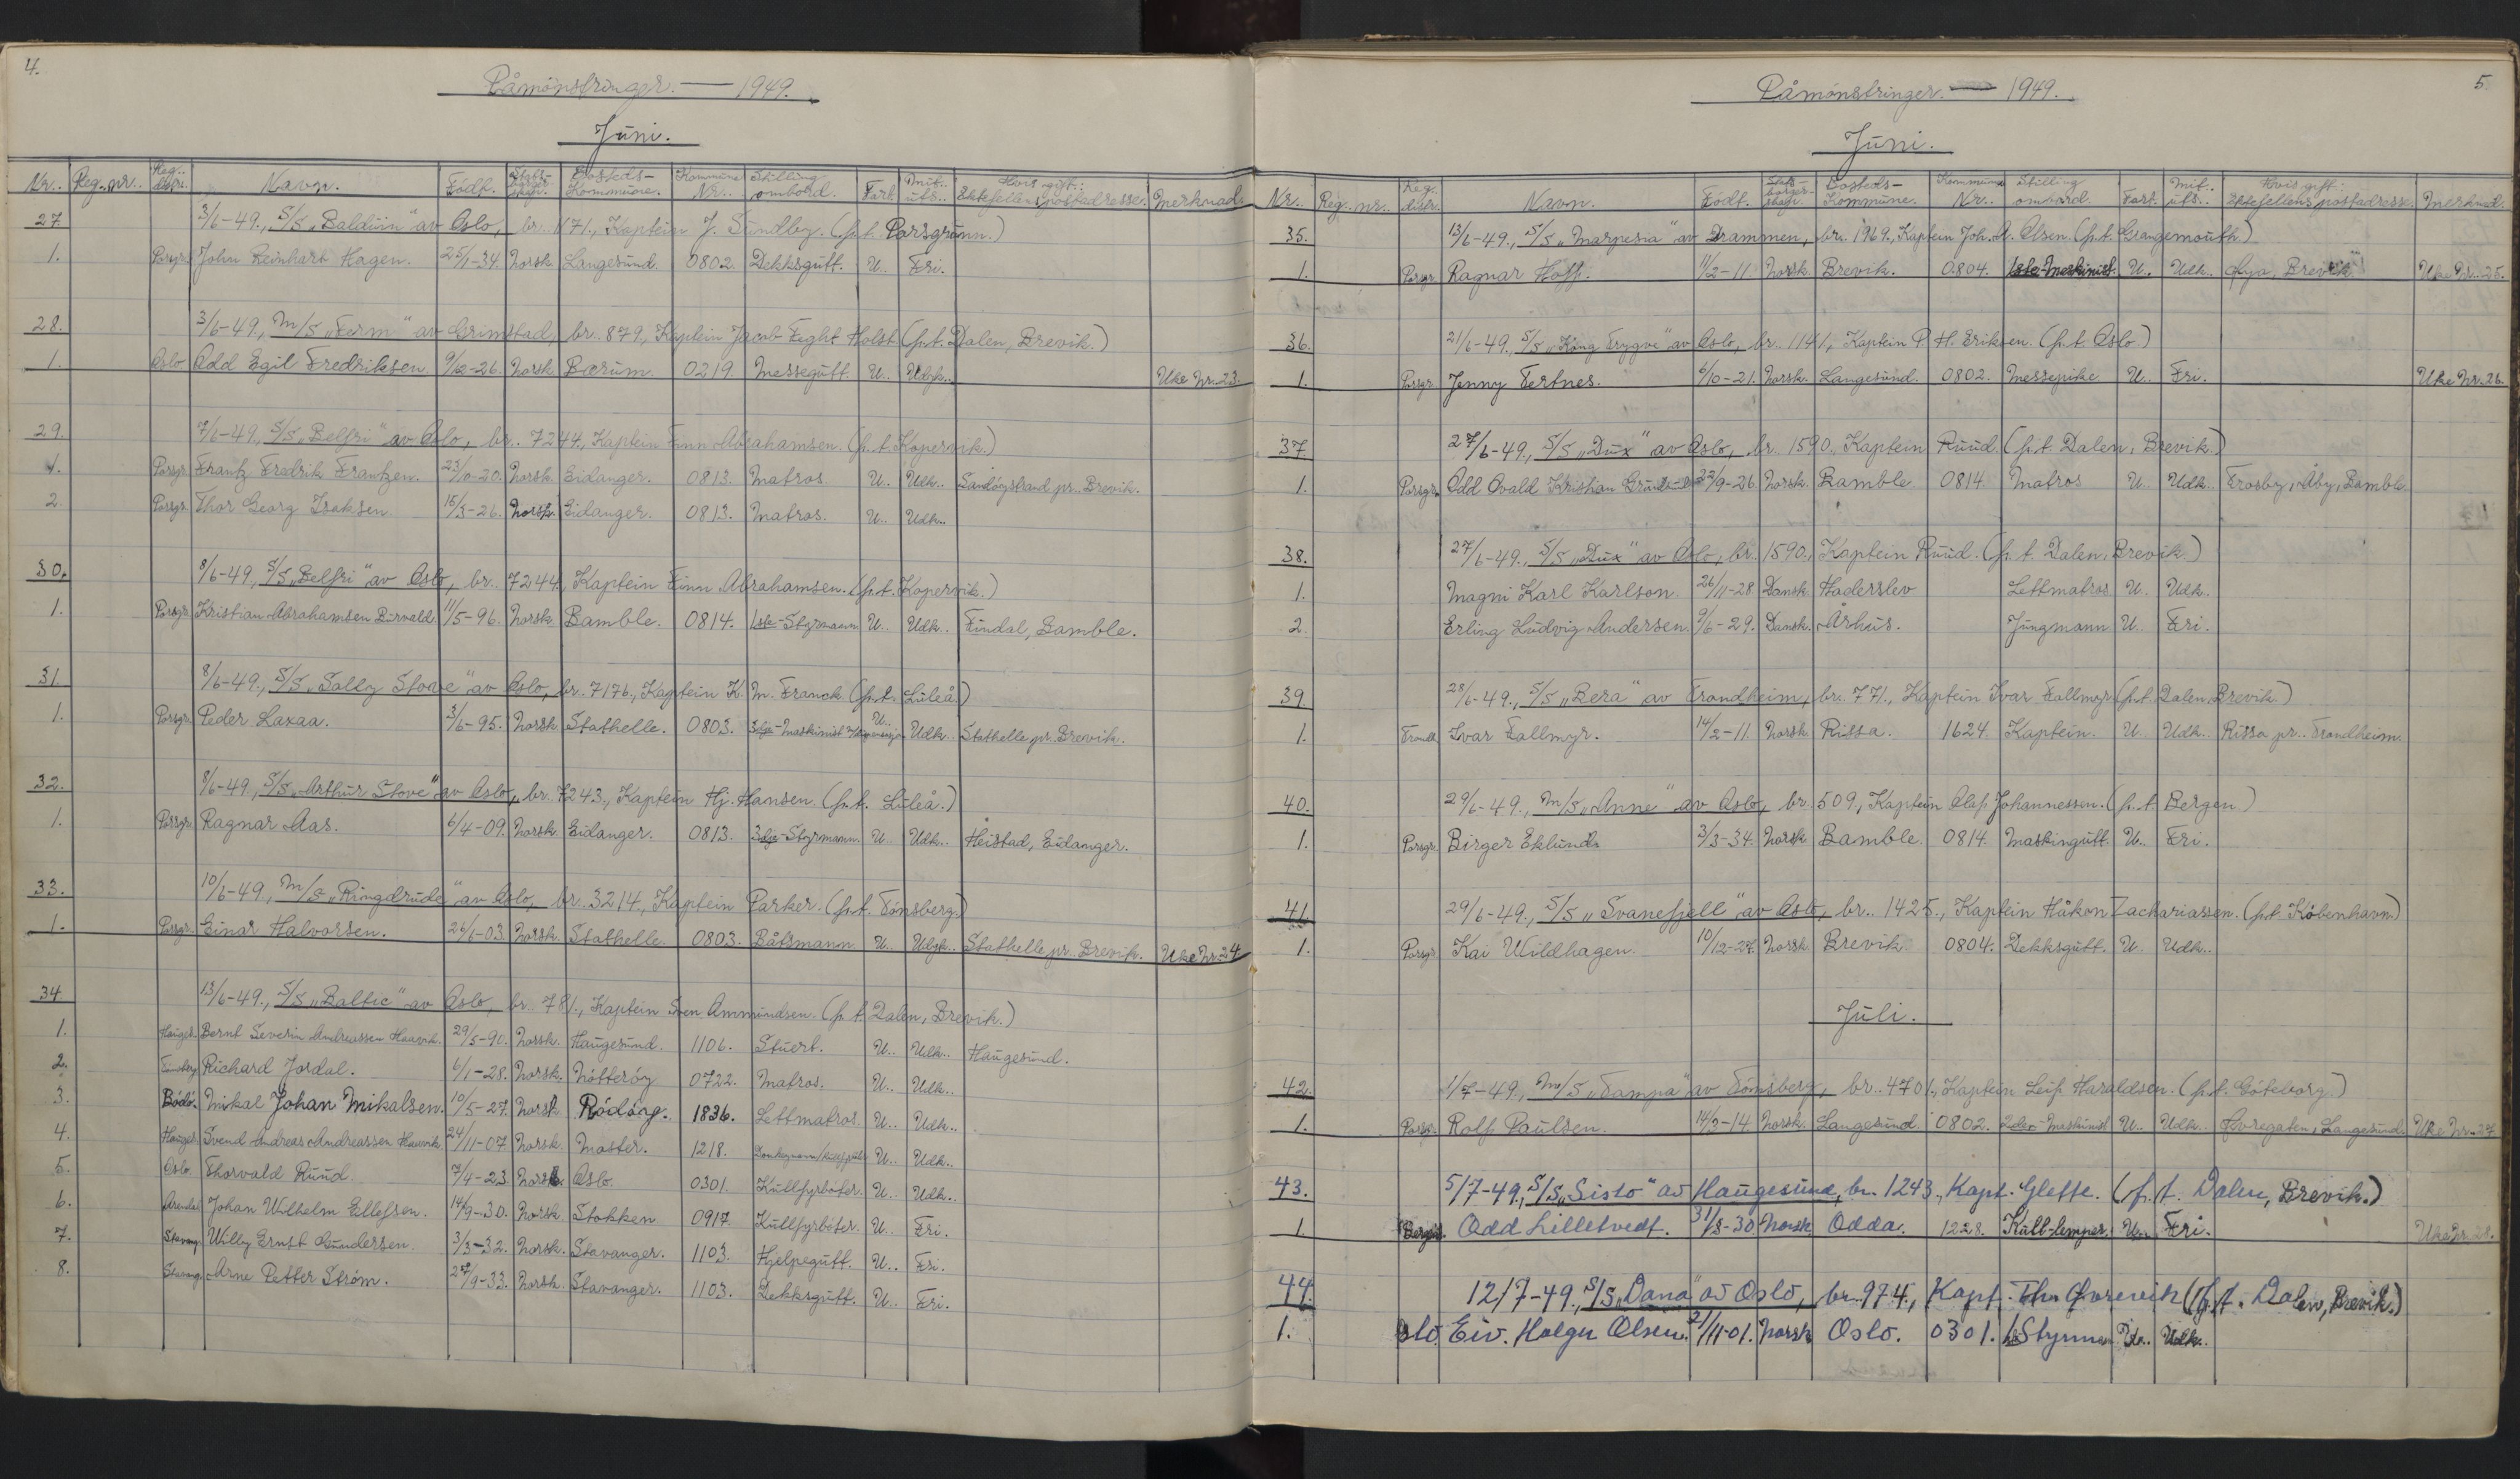 4.
Påmönstringer. — 1949.
Juni.
Nr. Reg.nr. Reg. distr. Navn. Födt. Stats-borger-skap. Bosteds-Kommune. Kommune Nr. Stilling ombord. Fart. Mil. uts. Hvis gift: Ektefellens postadresse. Merknad.
27. 3/6-49., S/S „Balduin" av Oslo, br. 1171., Kaptein J. Sundby. (p.t. Porsgrunn.)
1. Porsgr. John Reinhart Hagen. 25/1-34. Norsk Langesund. 0802. Dekksgutt. U.. Fri.
28. 3/6-49., M/S „Ferm" av Grimstad, br. 879., Kaptein Jacob Holst (p.t. Dalen, Brevik.)
1. Oslo Odd Egil Fredriksen 9/12-26. Norsk Bærum. 0219. Messegutt. U.. Uke Nr. 23.
29. 7/6-49., S/S „Belfri" av Oslo, br. 7244., Kaptein Finn Abrahamsen. (p.t. Kopervik.)
1. Porsgr. Frantz Fredrik Frantzen. 23/10-20. Norsk. Eidanger. 0813. Matros. U.. Udk.. Sandöystrand pr. Brevik.
2. Porsgr. Thor Georg Isaksen. 15/3-26. Norsk. Eidanger. 0813. Matros. U.. Udk..
30. 8/6-49, S/S „Belfri" av Oslo, br. 7244, Kaptein Finn Abrahamsen. (p.t. Kopervik.)
1. Porsgr. Kristian Abrahamsen 11/5-96. Norsk. Bamble. 0814. 1ste-Styrmann U.. Udk.. Findal, Bamble.
31. 8/6-49., S/S „Solly Stove" av Oslo, br. 7176., Kaptein K. M. Franck (p.t. Luleå)
1. Porsgr. Peder Laxaa. 3/6-95. Norsk Stathelle. 0803. 3dje-Maskinist U.. Udk.. Stathelle pr. Brevik.
32. 8/6-49, S/S „Arthur Stove" av Oslo, br. 7243., Kaptein Hj. Hansen. (p.t. Luleå.)
1. Porsgr. Ragnar Aas. 6/4-09. Norsk. Eidanger. 0813. 3dje-Styrmann. U.. Udk.. Heistad, Eidanger.
33. 10/6-49., M/S „Ringdrude" av Oslo, br. 3214., Kaptein Parker. (p.t. Tönsberg.)
1. Porsgr. Einar Halvorsen. 24/6-03. Norsk. Stathelle. 0803. Båtsmann U.. Stathelle pr. Brevik. Uke Nr. 24
34. 13/6-49., S/S „Baltic" av Oslo, br. 781., Kaptein Sven Ammundsen. (p.t. Dalen, Brevik.)
1. Hauges. Bernt Severin Andreassen Haavik. 29/5-90. Norsk. Haugesund. 1106. Stuert. U.. Udk.. Haugesund.
2. Tönsberg Richard Jordal. 6/1-28. Norsk. Nötteröy 0722. Matros. U.. Udk..
3. Bodö. Mikal Johan Mikalsen. 10/5-27. Norsk Rödöy. 1836. Lettmatros. U.. Udk..
4. Hauges. Svend Andreas Andreassen Haavik. 24/11-07. Norsk. Moster. 1218. U.. Udk..
5. Oslo. Thorvald Ruud. 7/4-23. Norsk. Oslo. 0301. Kullfyrböter. U.. Udk..
6. Arendal Johan Wilhelm Ellefsen. 14/9-30. Norsk Stokken 0917. Kullfyrböter. U. Fri.
7. Stavang. Willy Ernst Gundersen. 3/3-32. Norsk. Stavanger. 1103. Hjelpegutt. U.. Fri.
8. Stavang. Arne Petter Ström. 27/9-33. Norsk. Stavanger. 1103. Dekksgutt. U.. Fri.
5.
Påmönstringer. — 1949.
Juni.
Nr.. Reg. nr.. Reg. distr. Navn. Födt. Stats-borger-skap. Bosteds-Kommune. Kommune Nr. Stilling ombord. Fart. Mil. uts.. Hvis gift: Ektefellens postadresse. Merknad.
35. 13/6-49., S/S „Marpesia" av Drammen, br. 1969., Kaptein Joh. A. Olsen. (p.t. Grangemouth.)
1. Porsgr. Ragnar Hoff. 11/2-11 Norsk. Brevik. 0804. 1ste-Maskinist. U.. Udk. Öya, Brevik. Uke Nr. 25.
36. 21/6-49, S/S „Kong Trygve" av Oslo, br. 1141, Kaptein P. H. Eriksen. (p.t. Oslo.)
1. Porsgr. Jenny Tertnes. 6/10-21. Norsk. Langesund. 0802. Messepike U.. Fri. Uke Nr. 26.
37. 27/6-49., S/S „Dux" av Oslo, br. 1590., Kaptein Ruud. (p.t. Dalen, Brevik.)
1. Porsgr. Odd Ovald Kristian 22/9-26 Norsk. Bamble 0814. Matros U.. Udk.. Trosby, Åby, Bamble.
38. 27/6-49., S/S „Dux" av Oslo, br. 1590., Kaptein Ruud. (p.t. Dalen, Brevik.)
1. Magni Karl Karlson. 26/11-28. Dansk. Haderslev Lettmatros. U. Udk.
2. Erling Ludvig Andersen. 9/6-29. Dansk. Århus. Jungmann U. Fri.
39. 28/6-49., S/S „Rera" av Trondheim, br. 771., Kaptein Ivar Fallmyr (p.t. Dalen, Brevik.)
1. Trondh. Ivar Fallmyr. 14/2-11 Norsk. Rissa. 1624. Kaptein. U. Udk.. Rissa pr.. Trondheim.
40. 29/6-49., M/S „Anne" av Oslo, br. 509., Kaptein Olaf Johannessen. (p.t. Bergen.)
1. Porsgr. Birger Eklund. 3/3-34. Norsk Bamble. 0814. Maskingutt. U.. Fri.
41. 29/6-49., S/S „Svanefjell" av Oslo, br. 1425., Kaptein Håkon Zachariassen. (p.t. Köbenhavn)
1. Porsgr. Kai Wildhagen. 10/12-27. Norsk. Brevik. 0804. Dekksgutt. U. Udk..
Juli.
42. 1/7-49., M/S „Tampa" av Tönsberg, br. 4701., Kaptein Leif Haraldsen. (p.t. Göteborg.)
1. Porsgr. Rolf Paulsen. 14/3-14. Norsk. Langesund. 0802. 2den-Maskinist U.. Udk.. Övregaten, Langesund. Uke Nr. 27
43. 5/7-49., S/S „Sisto" av Haugesund, br. 1243., Kapt. Glette. (p.t. Dalen, Brevik.)
1. Bergen. Odd Lilletvedt. 31/8-30. Norsk Odda. 1228. Kull-lemper. U.. Fri. Uke Nr. 28.
44. 12/7-49., S/S „Dana" av Oslo, br. 974., Kapt. Th. Övrevik (p.t. Dalen, Brevik.)
1. Oslo. Eiv. Holger Olsen. 21/11-01. Norsk Oslo. 0301. 1ste Styrmann U.. Udk..